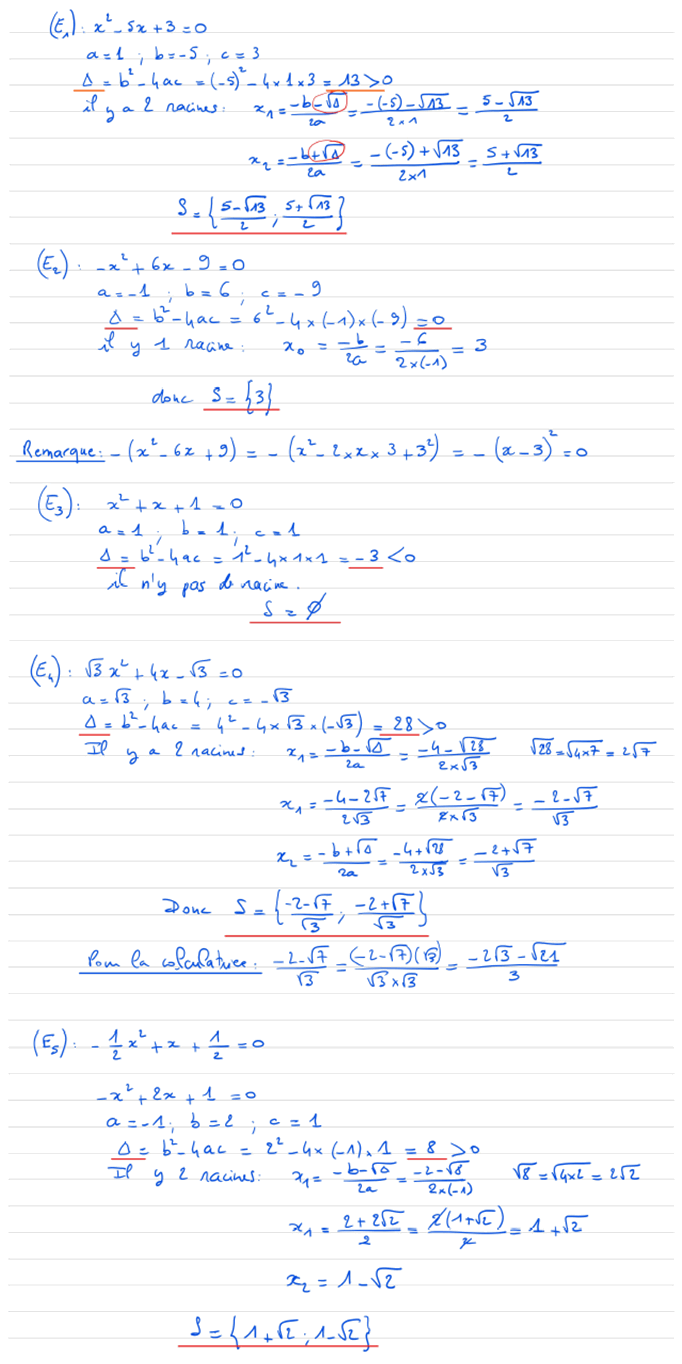 (E₁): x² - 5x + 3 = 0
a = 1 ; b = -5 ; c = 3
Δ = b² - 4ac = (-5)² - 4×1×3 = 13 > 0
il y a 2 racines: x₁ = (-b-√Δ)/2a = (-(-5)-√13)/(2×1) = (5-√13)/2
x₂ = (-b+√Δ)/2a = (-(-5)+√13)/(2×1) = (5+√13)/2
S = {(5-√13)/2 ; (5+√13)/2}
(E₂): -x² + 6x - 9 = 0
a = -1 ; b = 6 ; c = -9
Δ = b² - 4ac = 6² - 4×(-1)×(-9) = 0
il y 1 racine: x₀ = -b/2a = -6/(2×(-1)) = 3
donc S = {3}
Remarque: -(x² - 6x + 9) = -(x² - 2×x×3 + 3²) = -(x-3)² = 0
(E₃): x² + x + 1 = 0
a = 1 ; b = 1 ; c = 1
Δ = b² - 4ac = 1² - 4×1×1 = -3 < 0
il n'y pas de racine.
S = ∅
(E₄): √3 x² + 4x - √3 = 0
a = √3 ; b = 4 ; c = -√3
Δ = b² - 4ac = 4² - 4×√3×(-√3) = 28 > 0
Il y a 2 racines: x₁ = (-b-√Δ)/2a = (-4-√28)/(2×√3) √28 = √4×7 = 2√7
x₁ = (-4-2√7)/2√3 = 2(-2-√7)/(2×√3) = (-2-√7)/√3
x₂ = (-b+√Δ)/2a = (-4+√28)/(2×√3) = (-2+√7)/√3
Donc S = {(-2-√7)/√3 ; (-2+√7)/√3}
Pour la calculatrice: (-2-√7)/√3 = (-2-√7)(√3)/(√3×√3) = (-2√3-√21)/3
(E₅): -1/2 x² + x + 1/2 = 0
-x² + 2x + 1 = 0
a = -1 ; b = 2 ; c = 1
Δ = b² - 4ac = 2² - 4×(-1)×1 = 8 > 0
Il y 2 racines: x₁ = (-b-√Δ)/2a = (-2-√8)/(2×(-1)) √8 = √4×2 = 2√2
x₁ = (2+2√2)/2 = 2(1+√2)/2 = 1+√2
x₂ = 1-√2
S = {1+√2 ; 1-√2}